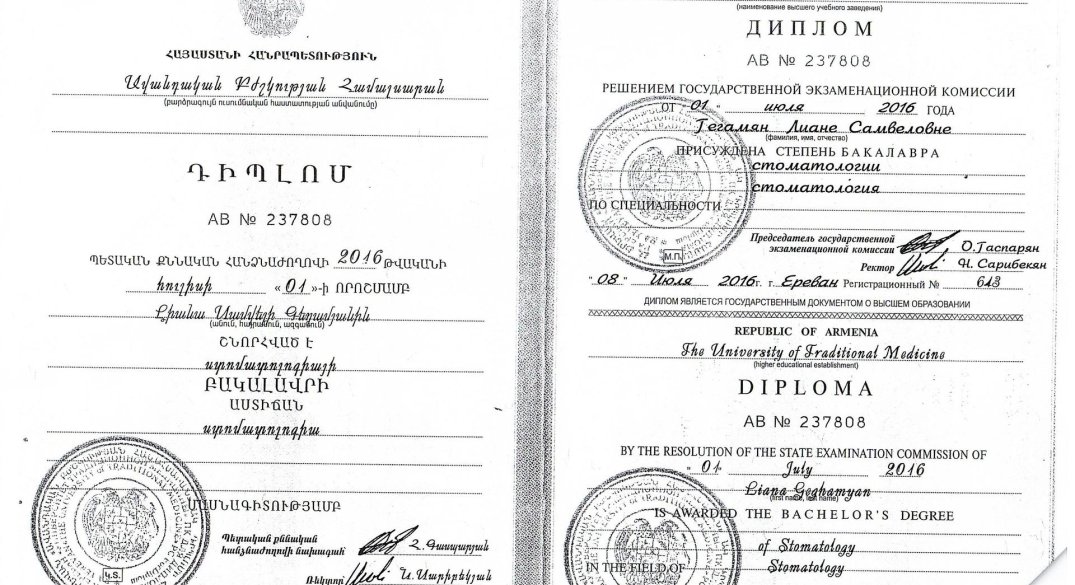 ՀԱՅԱՍՏԱՆԻ ՀԱՆՐԱՊԵՏՈՒԹՅՈՒՆ
Ավանդական Բժշկության Համալսարան
(բարձրագույն ուսումնական հաստատության անվանումը)
ԴԻՊԼՈՄ
AB № 237808
ՊԵՏԱԿԱՆ ՔՆՆԱԿԱՆ ՀԱՆՁՆԱԺՈՂՈՎԻ 2016 ԹՎԱԿԱՆԻ
հուլիսի «01»-ի ՈՐՈՇՄԱՄԲ
Լիանա Սամվելի Գեղամյանին
(անուն, հայրանուն, ազգանուն)
ՇՆՈՐՀՎԱԾ Է
ստոմատոլոգիայի
ԲԱԿԱԼԱՎՐԻ
ԱՍՏԻՃԱՆ
ստոմատոլոգիա
ՄԱՍՆԱԳԻՏՈՒԹՅԱՄԲ
Պետական քննական
հանձնաժողովի նախագահ Հ. Գասպարյան
Կ.Տ.
Ռեկտոր Ն. Սարիբեկյան
(наименование высшего учебного заведения)
ДИПЛОМ
AB № 237808
РЕШЕНИЕМ ГОСУДАРСТВЕННОЙ ЭКЗАМЕНАЦИОННОЙ КОМИССИИ
ОТ "01" июля 2016 ГОДА
Гегамян Лиане Самвеловне
(фамилия, имя, отчество)
ПРИСУЖДЕНА СТЕПЕНЬ БАКАЛАВРА
стоматологии
стоматология
ПО СПЕЦИАЛЬНОСТИ
Председатель государственной
экзаменационной комиссии О.Гаспарян
М.П.
Ректор Н. Сарибекян
"08" Июля 2016г. г. Ереван Регистрационный № 613
ДИПЛОМ ЯВЛЯЕТСЯ ГОСУДАРСТВЕННЫМ ДОКУМЕНТОМ О ВЫСШЕМ ОБРАЗОВАНИИ
REPUBLIC OF ARMENIA
The University of Traditional Medicine
(higher educational establishment)
DIPLOMA
AB № 237808
BY THE RESOLUTION OF THE STATE EXAMINATION COMMISSION OF
"01" July 2016
Liana Geghamyan
(first name, last name)
IS AWARDED THE BACHELOR'S DEGREE
of Stomatology
IN THE FIELD OF Stomatology